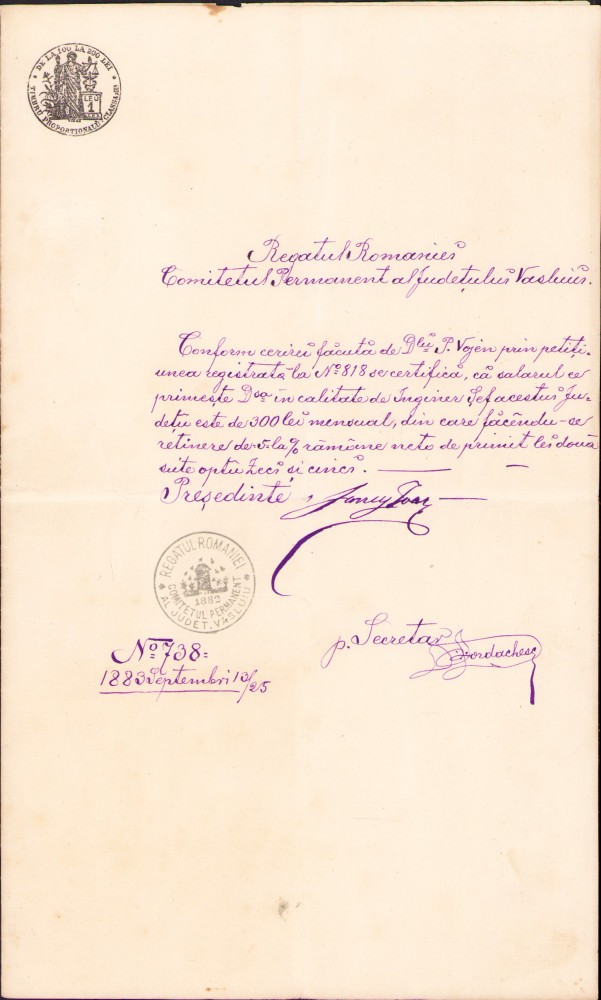 DE LA 100 LA 200 LEI
LEU
1
TIMBRU PROPORTIONALU
Regatul Romaniei
Comitetul Permanent al Județului Vasluiŭ.
Conform cererei făcută de Dlŭ P. Vojen prin petiți-
unea registrată la No 818 se certifică, că salarul ce
primește Dsa in calitate de Inginer Șef acestui Ju-
dețŭ este de 300 lei mensual, din care făcêndu-se
retinere de 5 la % rămâne neto de primit lei două
sute optŭ zeci și cinci.
Președinte,
REGATUL ROMANIEI
1882
COMITETUL PERMANENT
AL JUDET. VASLUIU
p. Secretar Iordachesc
No 738.
1883 Septembri 13/25